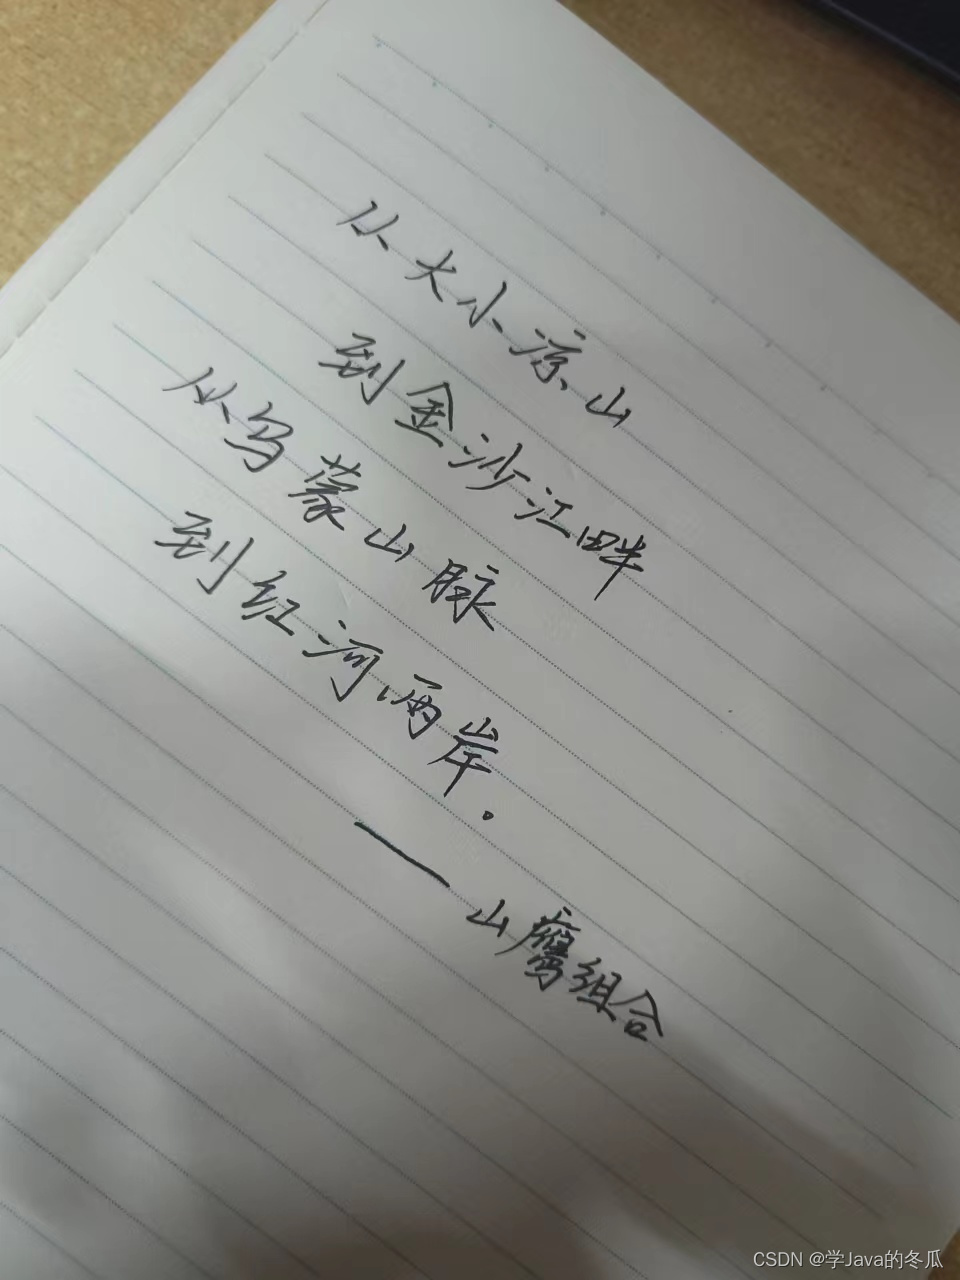 从大小凉山
到金沙江畔
从乌蒙山脉
到红河两岸.
——山鹰组合
CSDN @学Java的冬瓜